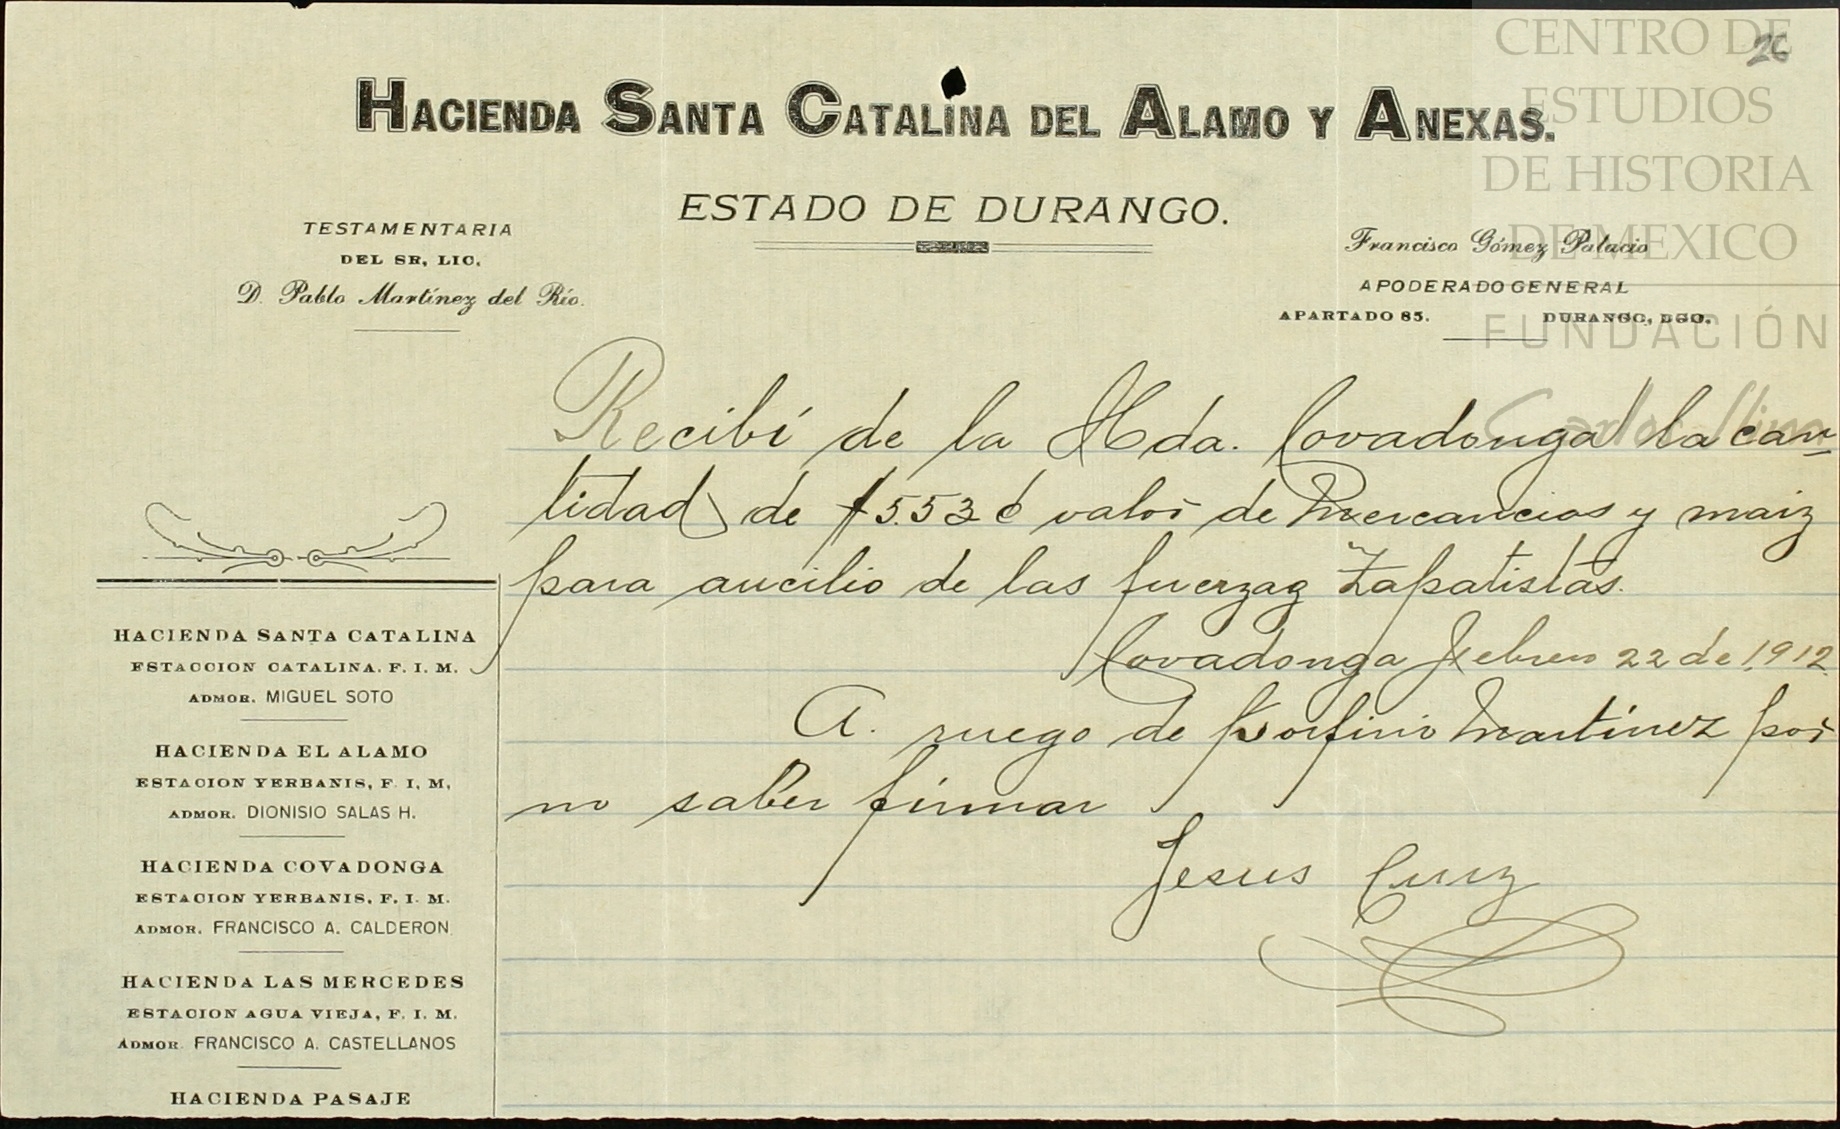 CENTRO DE
ESTUDIOS
DE HISTORIA
DE MEXICO
FUNDACIÓN
Carlos Slim
26
HACIENDA SANTA CATALINA DEL ALAMO Y ANEXAS.
ESTADO DE DURANGO.
TESTAMENTARIA
DEL SR, LIC.
D. Pablo Martínez del Río.
Francisco Gómez Palacio
APODERADO GENERAL
APARTADO 85. DURANGO, DGO.
Recibí de la Hda. Covadonga la can-
tidad de $5.53 ¢ valor de Mercancias y maiz
para aucilio de las fuerzaz Zapatistas.
Covadonga Febrero 22 de 1912
A. ruego de Porfirio Martínez por
no saber firmar
Jesus Cruz
HACIENDA SANTA CATALINA
ESTACCION CATALINA. F. I. M.
ADMOR. MIGUEL SOTO
HACIENDA EL ALAMO
ESTACION YERBANIS, F. I. M.
ADMOR. DIONISIO SALAS H.
HACIENDA COVADONGA
ESTACION YERBANIS. F. I. M.
ADMOR. FRANCISCO A. CALDERON
HACIENDA LAS MERCEDES
ESTACION AGUA VIEJA, F. I. M.
ADMOR. FRANCISCO A. CASTELLANOS
HACIENDA PASAJE